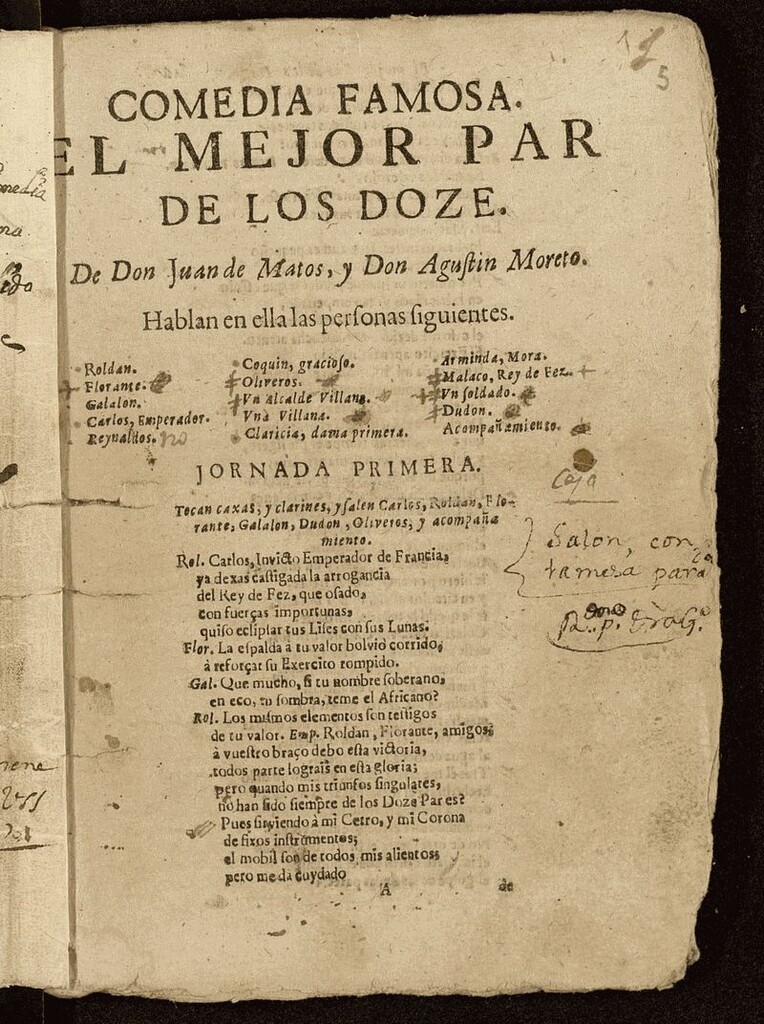 5
COMEDIA FAMOSA.
EL MEJOR PAR
DE LOS DOZE.
De Don Juan de Matos, y Don Aguſtin Moreto.
Hablan en ella las perſonas ſiguientes.
Roldan.
Florante.
Galalon.
Carlos, Emperador.
Reynaldos.
Coquin, gracioſo.
Oliveros.
Vn Alcalde Villano.
Vna Villana.
Claricia, dama primera.
Arminda, Mora.
Malaco, Rey de Fez.
Vn ſoldado.
Dudon.
Acompañamiento.
JORNADA PRIMERA.
Tocan caxas, y clarines, y ſalen Carlos, Roldan, Flo-
rante, Galalon, Dudon, Oliveros, y acompaña
miento.
Rol. Carlos, Invicto Emperador de Francia,
ya dexas caſtigada la arrogancia
del Rey de Fez, que oſado,
con fuerças importunas,
quiſo eclipſar tus Liſes con ſus Lunas.
Flor. La eſpalda à tu valor bolviò corrido,
à reforçar ſu Exercito rompido.
Gal. Que mucho, ſi tu nombre ſoberano,
en eco, en ſombra, teme el Africano?
Rol. Los miſmos elementos ſon teſtigos
de tu valor. Emp. Roldan, Florante, amigos,
à vueſtro braço debo eſta victoria,
todos parte lograis en eſta gloria;
pero quando mis triunfos ſingulares,
no han ſido ſiempre de los Doze Pares?
Pues ſirviendo à mi Cetro, y mi Corona
de fixos inſtrumentos;
el mobil ſon de todos mis alientos;
pero me dà cuydado
A
de
Caja
Salon, con
la mesa para